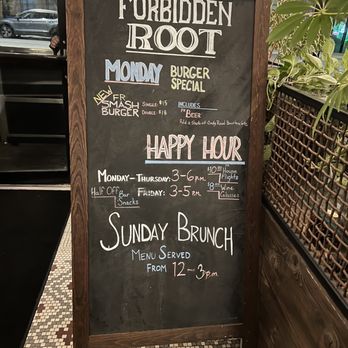 FORBIDDEN
ROOT
MONDAY BURGER
SPECIAL
NEW FR
SMASH
BURGER
SINGLE: $15
DOUBLE: $18
INCLUDES
BEER
HAPPY HOUR
MONDAY-THURSDAY: 3-6pm
FRIDAY: 3-5pm
HALF OFF BAR
SNACKS
HOUSE
FLIGHTS
WINE
GLASSES
SUNDAY BRUNCH
MENU SERVED
FROM 12-3pm